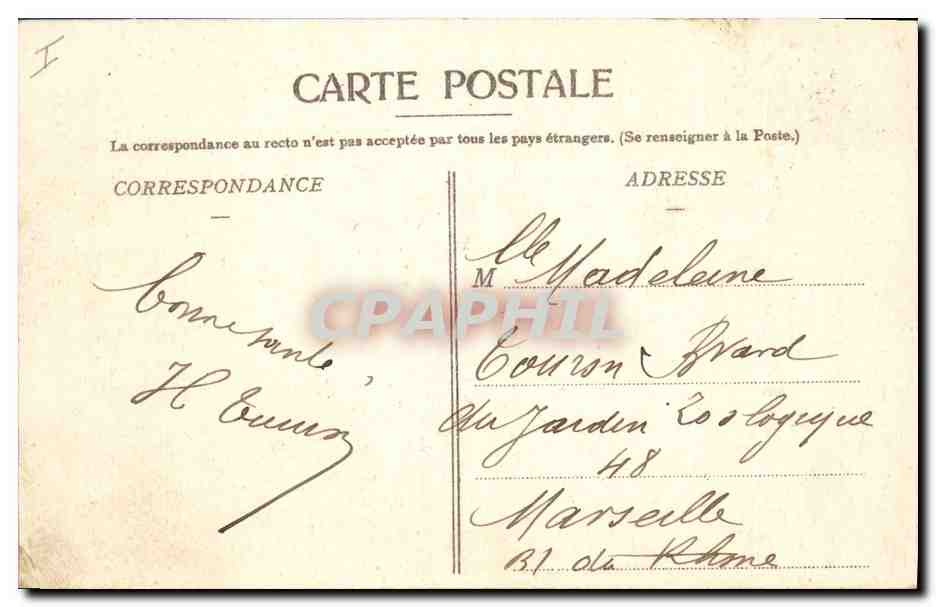 I
CARTE POSTALE
La correspondance au recto n'est pas acceptée par tous les pays étrangers. (Se renseigner à la Poste.)
CORRESPONDANCE
Bonne santé,
H
ADRESSE
Mlle Madeleine
Touron Bvard
du Jardin Zoologique
48
Marseille
B/ du Rhone
CPAPHIL